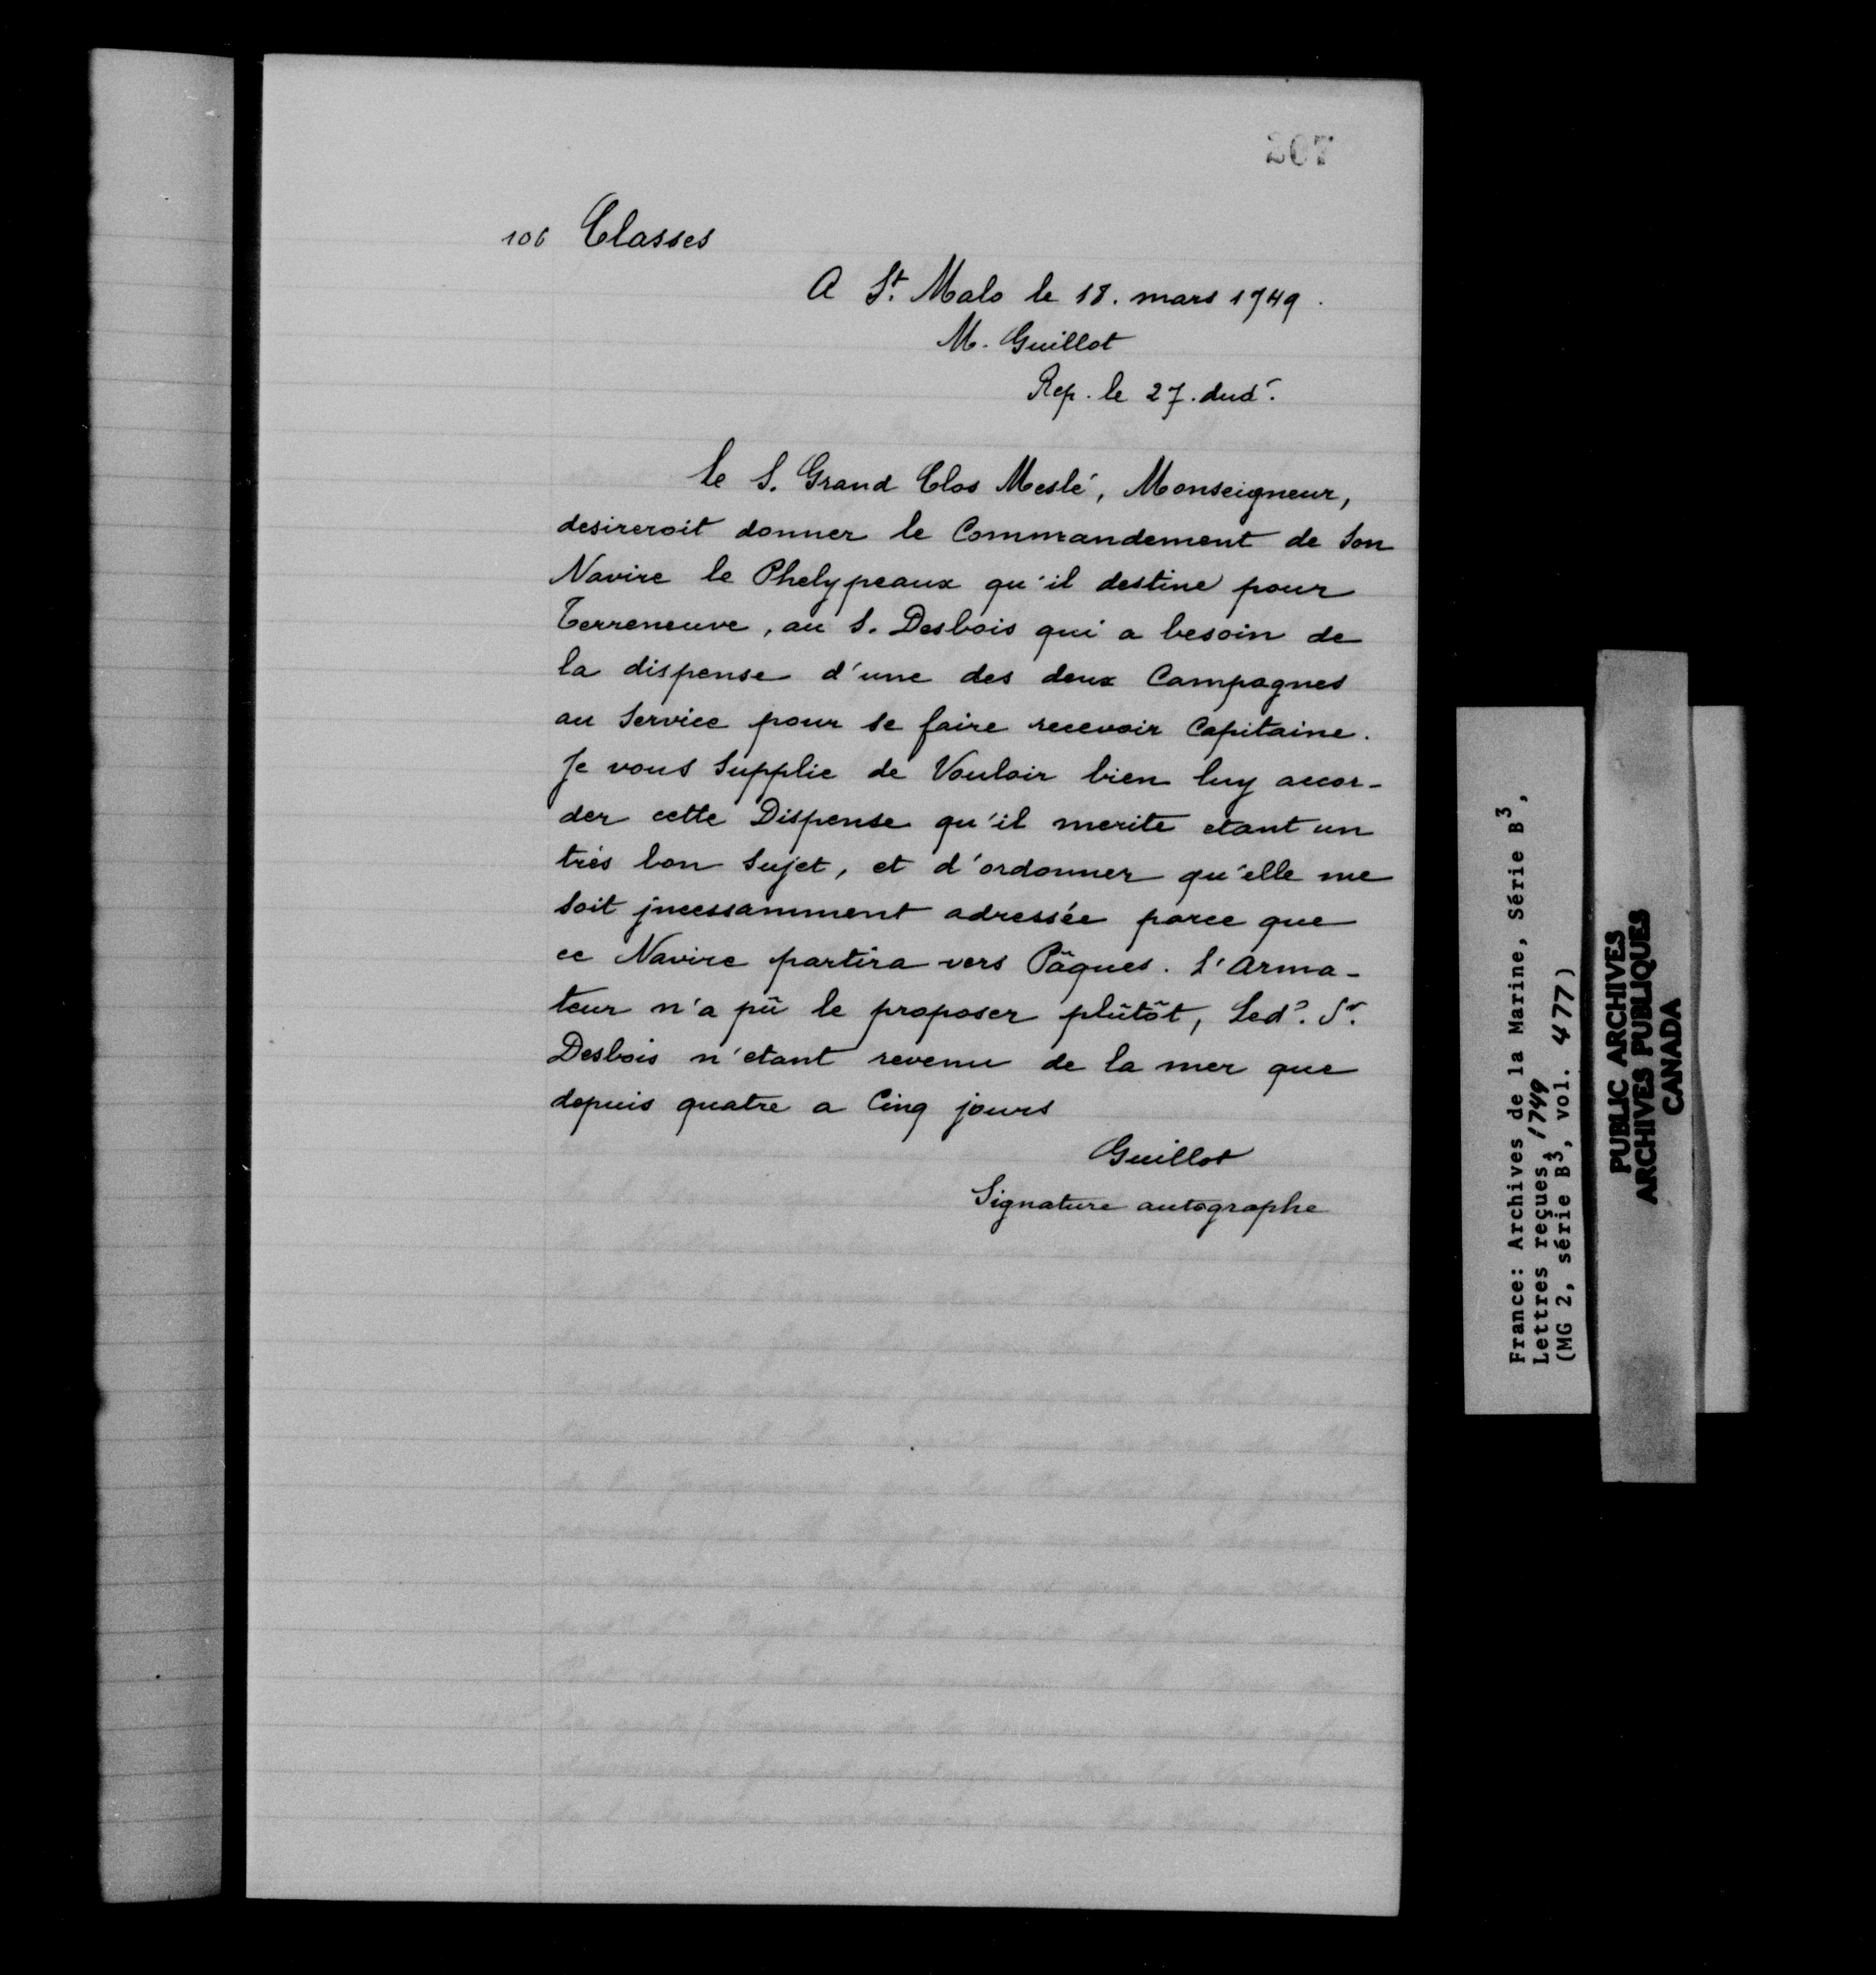 207
106 Classes
A St. Malo le 18. mars 1749.
M. Guillot
Rep. le 27. dud.
le S. Grand Clos Meslé, Monseigneur,
desireroit donner le Commandement de Son
Navire le Phelypeaux qu'il destine pour
Terreneuve, au S. Desbois qui a besoin de
la dispense d'une des deux Campagnes
au Service pour se faire recevoir Capitaine.
Je vous Supplie de Vouloir bien luy accor-
der cette Dispense qu'il merite etant un
trés bon Sujet, et d'ordonner qu'elle me
soit jncessamment adressée parce que
ce Navire partira vers Pâques. L'Arma-
teur n'a pû le proposer plûtôt, Led. Sr.
Desbois n'etant revenu de la mer que
depuis quatre a Cinq jours
Guillot
Signature autographe
France: Archives de la Marine, Série B3,
Lettres reçues, 1749
(MG 2, série B3, vol. 477)
PUBLIC ARCHIVES
ARCHIVES PUBLIQUES
CANADA